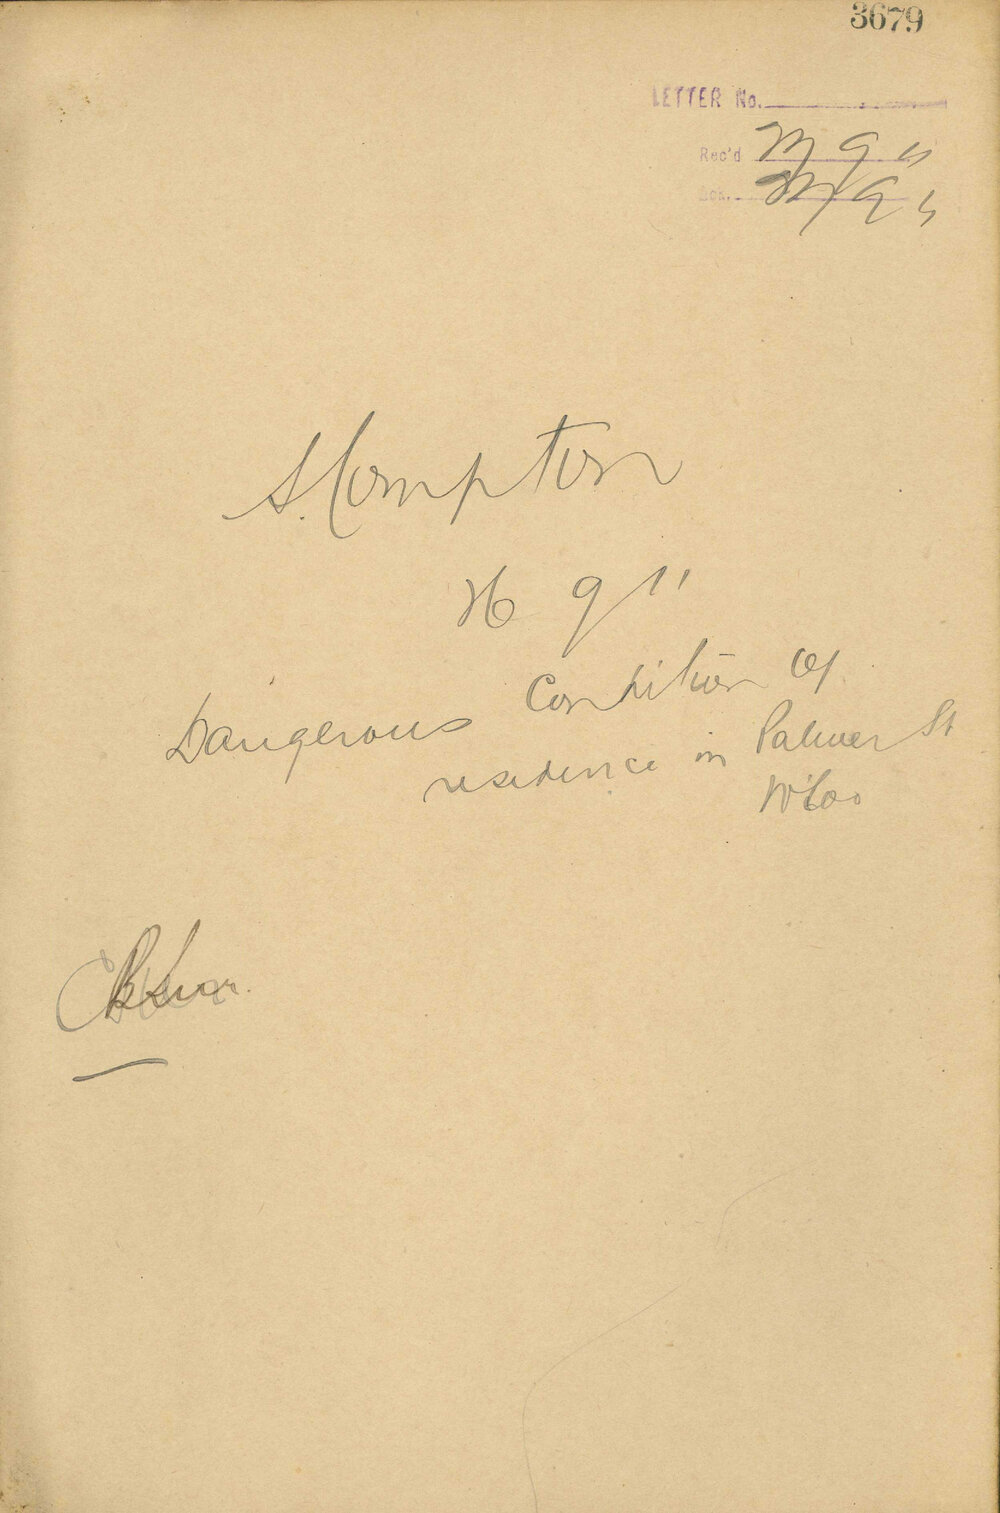 3679
LETTER No.
Rec'd
S. Compton
26 9 11
Dangerous Condition Of
residence in Palmer St
W'loo